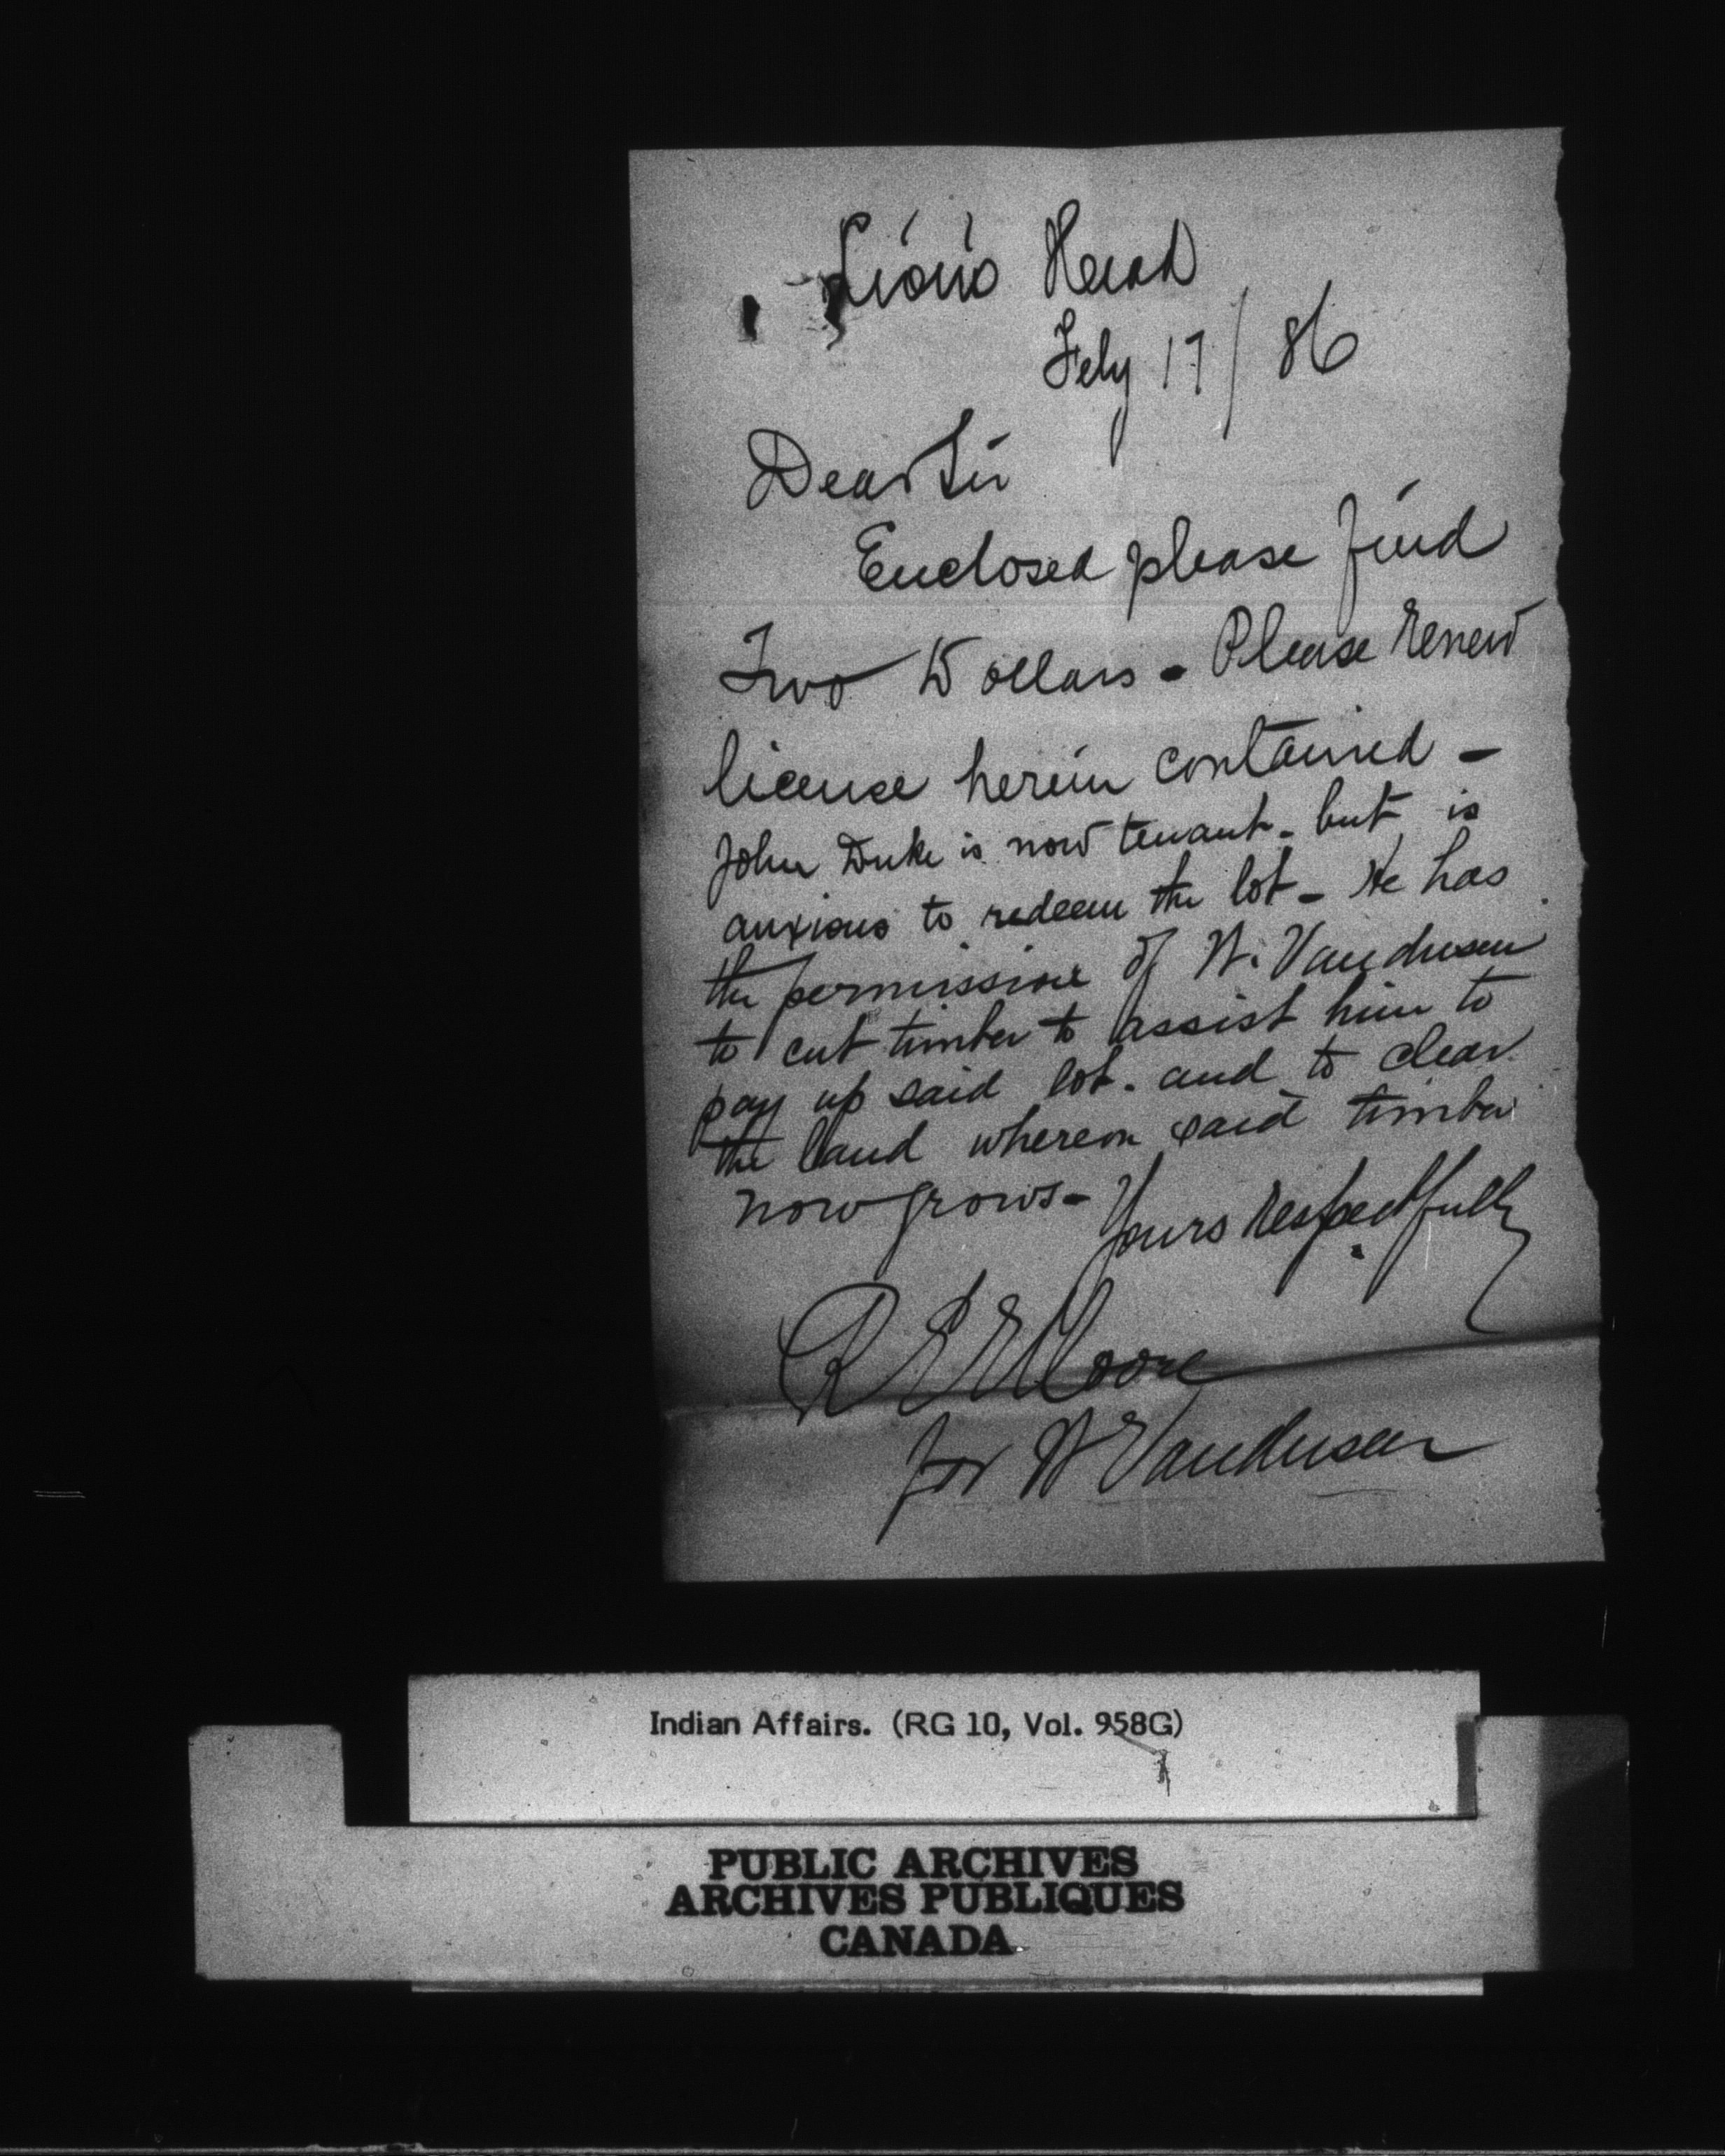 Lion's Head
Feby 17/86
Dear Sir
Enclosed please find
Two Dollars - Please renew
license herein contained -
John Duke is now tenant - but is
anxious to redeem the lot - He has
the permission of W. Vandusen
to cut timber to assist him to
pay up said lot - and to clear
the land whereon said timber
now grows - Yours respectfully
R Moore
for W Vandusen
Indian Affairs. (RG 10, Vol. 958G)
PUBLIC ARCHIVES
ARCHIVES PUBLIQUES
CANADA